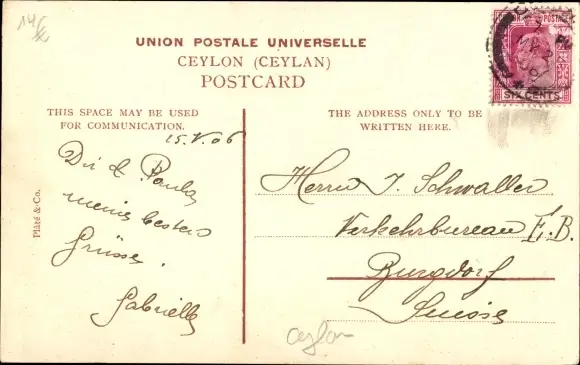 UNION POSTALE UNIVERSELLE
CEYLON (CEYLAN)
POSTCARD
THIS SPACE MAY BE USED
FOR COMMUNICATION.
THE ADDRESS ONLY TO BE
WRITTEN HERE.
15.V.06
Dir & Paula
meine besten
Grüsse.
Gabrielle
Herrn J. Schwaller
Verkehrbureau E.B.
Burgdorf
Suisse
Plâté & Co.
POSTAGE
SIX CENTS
Ceylon